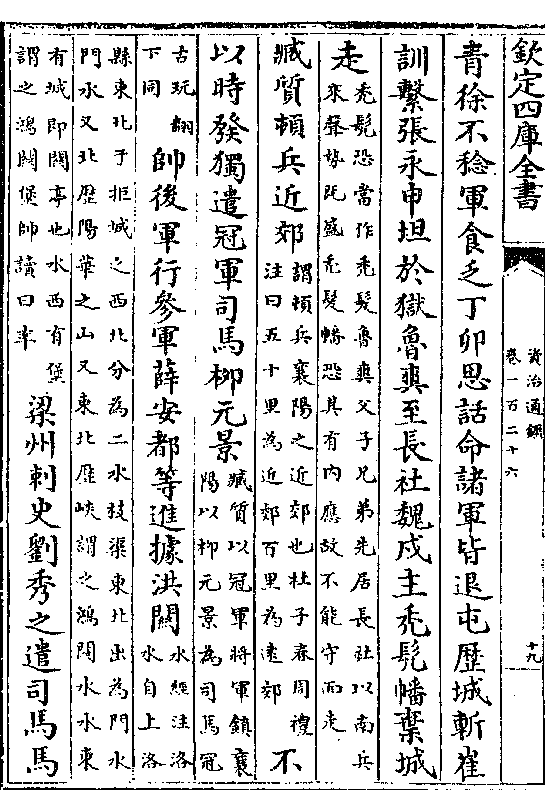 欽定四庫全書
資治通鑑
卷一百二十六
十九
青徐不稔軍食乏丁卯思話命諸軍皆退屯歷城斬崔
訓繫張永申坦於獄魯爽至長社魏戍主禿髠幡棄城
走禿髠恐當作禿髮魯爽父子兄弟先居長社以南兵
來聲勢既盛禿髮幡恐其有内應故不能守而走
不
臧質頓兵近郊謂頓兵襄陽之近郊也杜子春周禮
注曰五十里為近郊百里為遠郊
以時發獨遣冠軍司馬柳元景臧質以冠軍將軍鎮襄
陽以柳元景為司馬冠
古玩翻
下同
帥後軍行參軍薛安都等進據洪關水經注洛
水自上洛
縣東北于拒城之西北分為二水枝渠東北出為門水
門水又北歷陽華之山又東北歷峽謂之鴻關水水東
有城即關亭也水西有堡
謂之鴻關堡帥讀曰率
梁州刺史劉秀之遣司馬馬